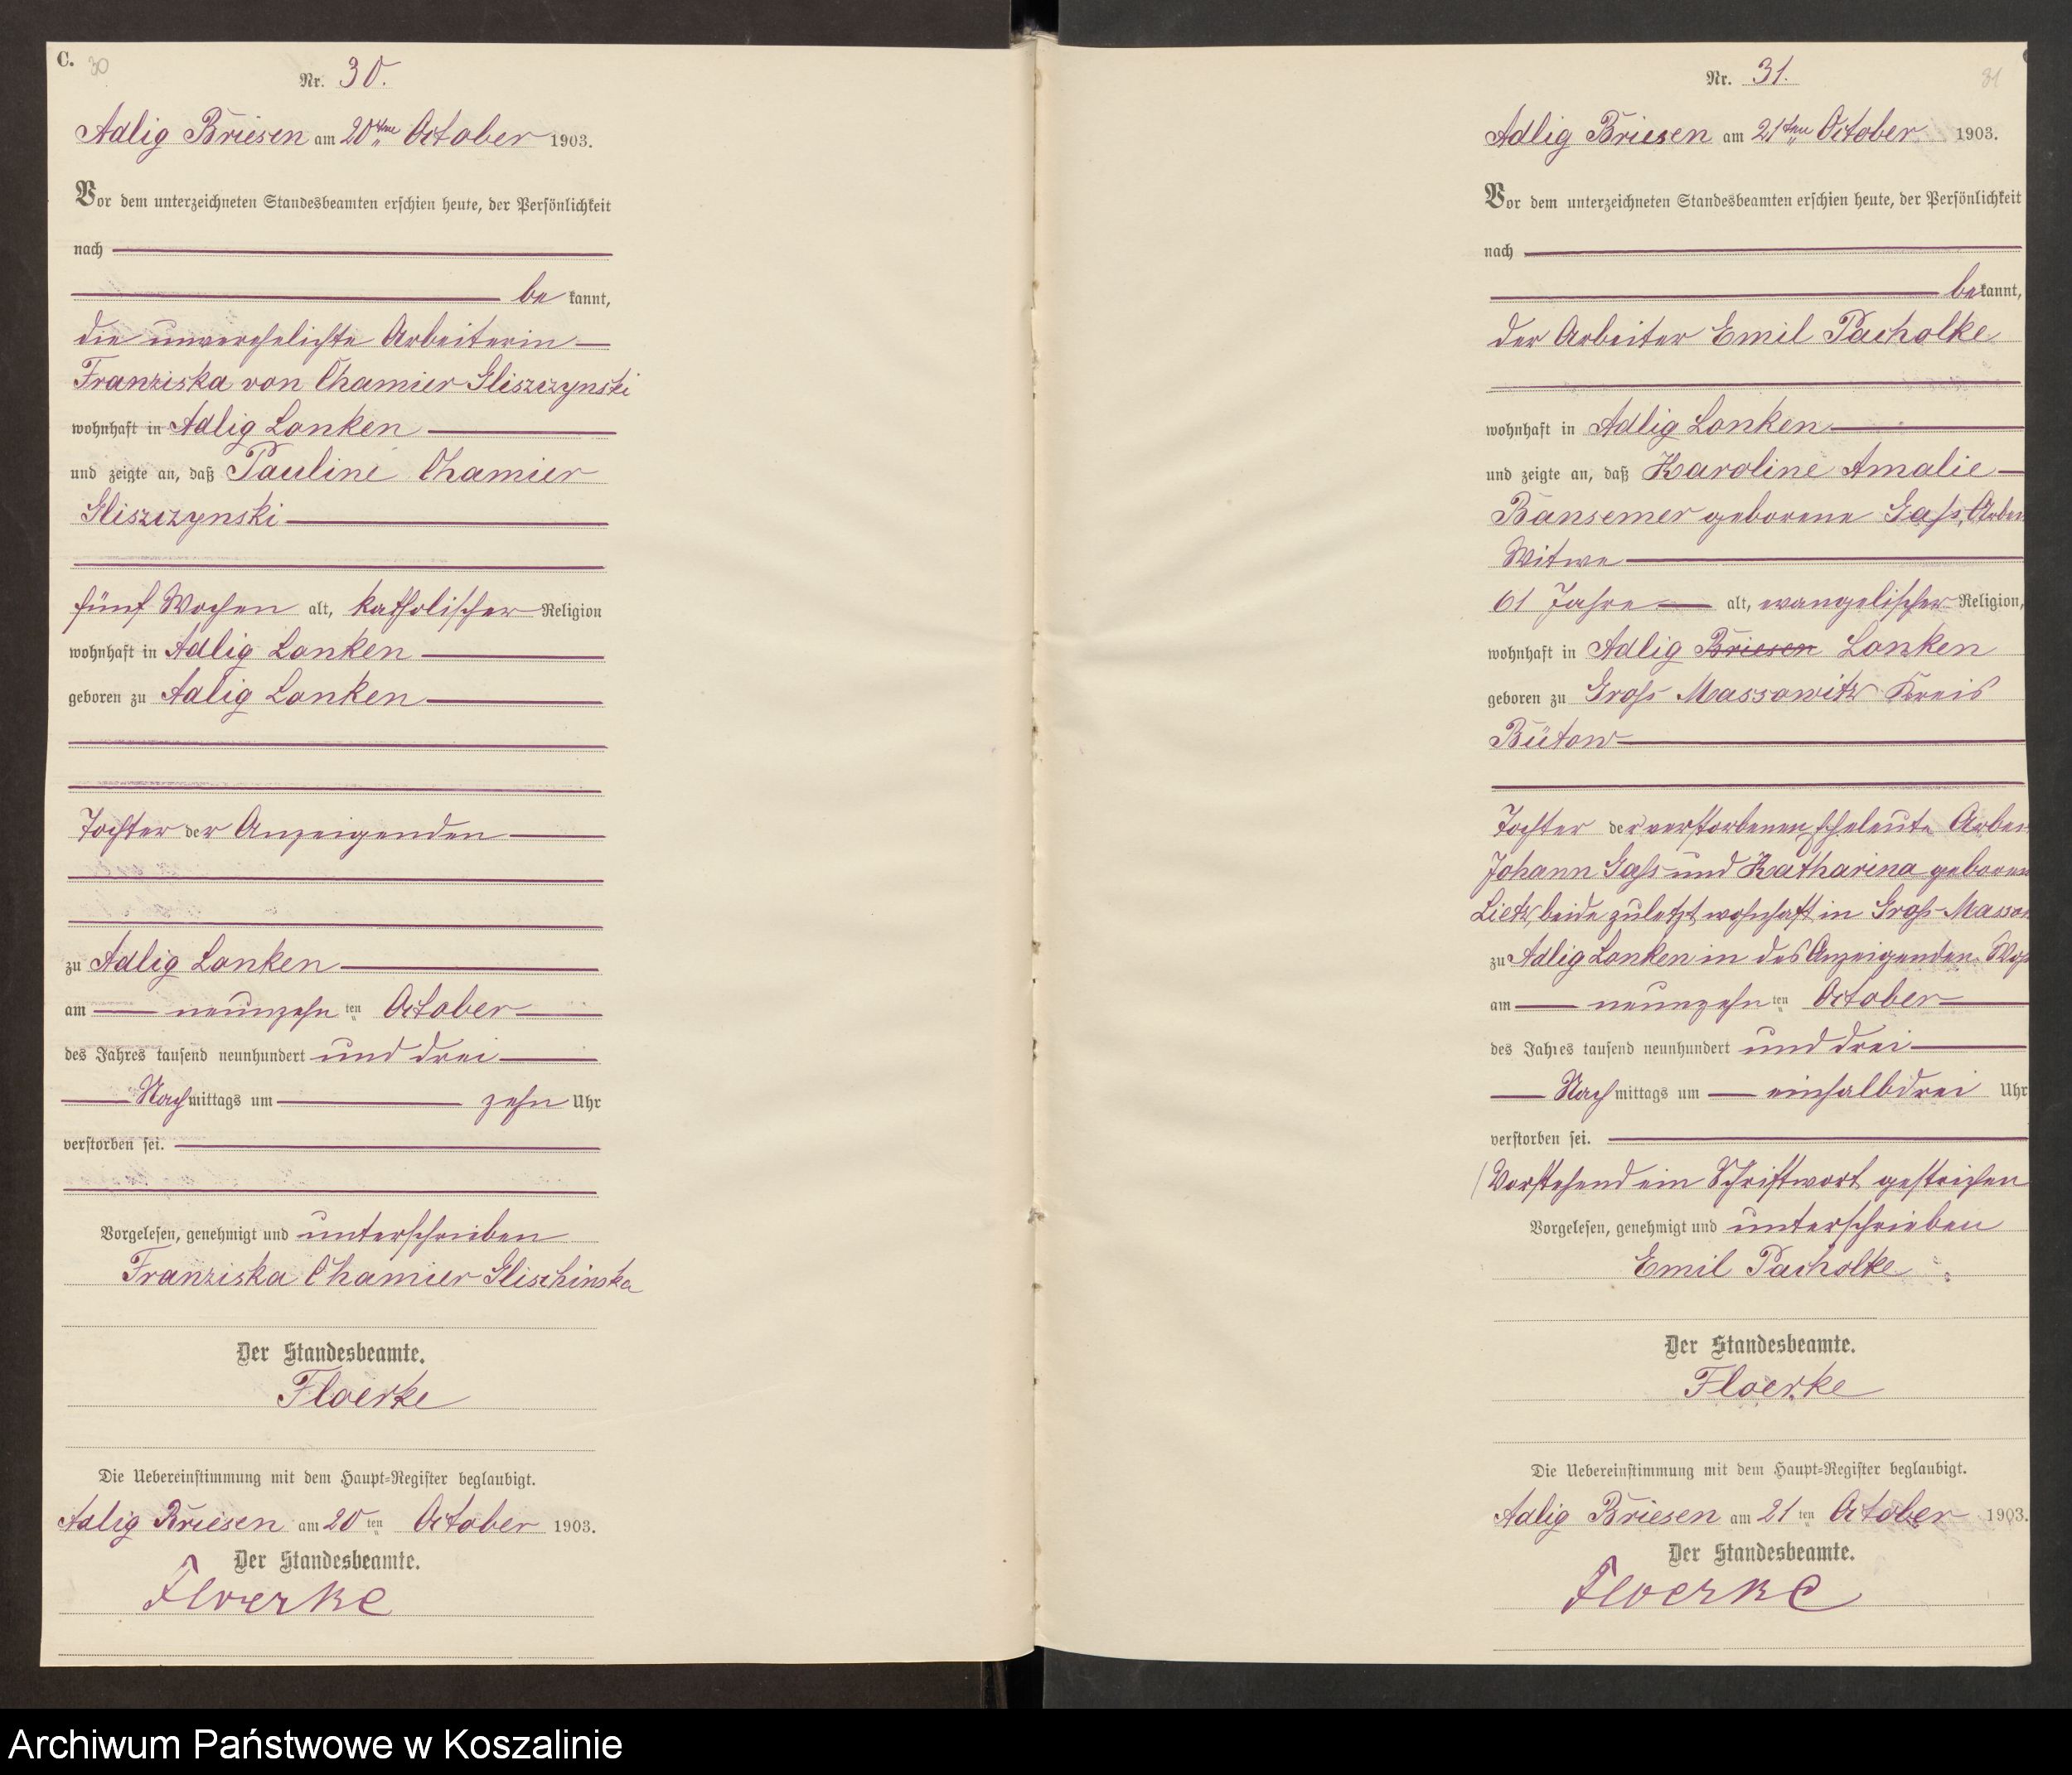 C. 30
Nr. 30.
Adlig Briesen am 20ten October 1903.
Vor dem unterzeichneten Standesbeamten erschien heute, der Persönlichkeit
nach
be kannt,
die unverehelichte Arbeiterin
Franziska von Chamier Gliszczynski
wohnhaft in Adlig Lonken
und zeigte an, daß Pauline Chamier
Gliszczynski
fünf Wochen alt, katholischer Religion
wohnhaft in Adlig Lonken
geboren zu Adlig Lonken
Tochter der Anzeigenden
zu Adlig Lonken
am neunzehn ten October
des Jahres tausend neunhundert und drei
Nachmittags um zehn Uhr
verstorben sei.
Vorgelesen, genehmigt und unterschrieben
Franziska Chamier Glischinska
Der Standesbeamte.
Floerke
Die Uebereinstimmung mit dem Haupt-Register beglaubigt.
Adlig Briesen am 20 ten October 1903.
Der Standesbeamte.
Floerke
31
Nr. 31.
Adlig Briesen am 21ten October 1903.
Vor dem unterzeichneten Standesbeamten erschien heute, der Persönlichkeit
nach
bekannt,
der Arbeiter Emil Pacholke
wohnhaft in Adlig Lonken
und zeigte an, daß Karoline Amalie
Bansemer geborene Gaß, Arbei
Witwe
61 Jahre alt, evangelischer Religion,
wohnhaft in Adlig Briesen Lonken
geboren zu Groß Massowitz Kreis
Bütow
Tochter der verstorbenen Eheleute Arbei
Johann Gaß und Katharina geboren
Lietz, beide zuletzt wohnhaft in Groß Massow
zu Adlig Lonken in des Anzeigenden Woh
am neunzehn ten October
des Jahres tausend neunhundert und drei
Nachmittags um einhalbdrei Uhr
verstorben sei.
Vorstehend ein Schriftwort gestrichen
Vorgelesen, genehmigt und unterschrieben
Emil Pacholke
Der Standesbeamte.
Floerke
Die Uebereinstimmung mit dem Haupt-Register beglaubigt.
Adlig Briesen am 21 ten October 1903.
Der Standesbeamte.
Floerke
Archiwum Państwowe w Koszalinie